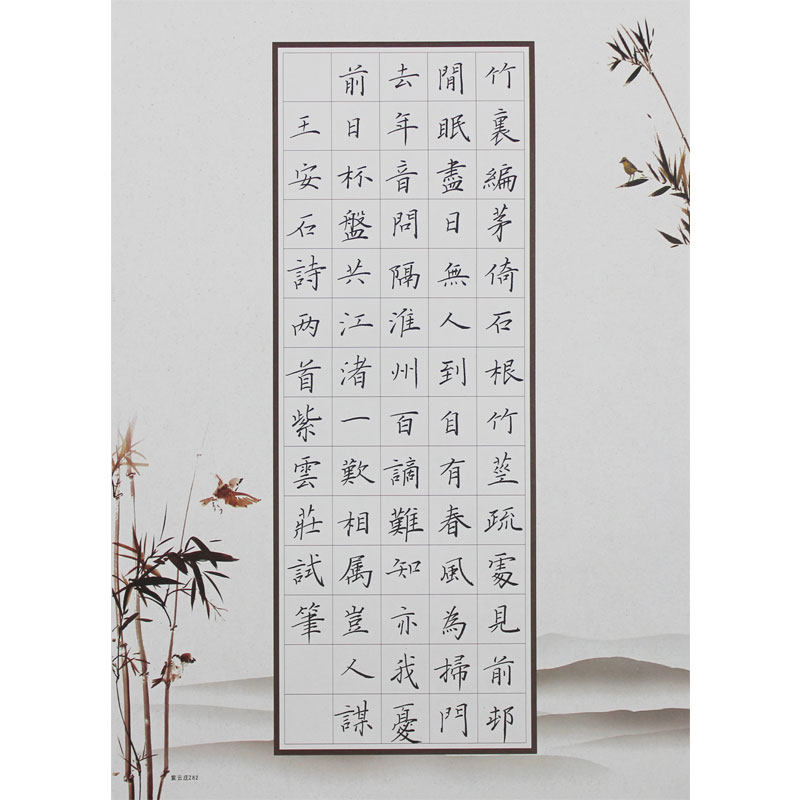 竹裏編茅倚石根竹莖疏處見前邨
閒眠盡日無人到自有春風為掃門
去年音問隔淮州百謫難知亦我憂
前日杯盤共江渚一歎相属豈人謀
王安石詩两首紫雲莊試筆
紫云庄282